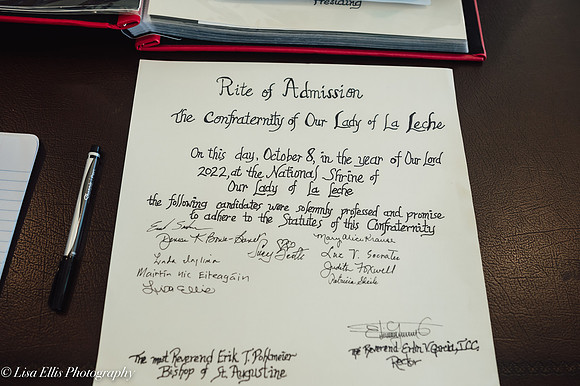 Presiding
Rite of Admission
The Confraternity of Our Lady of La Leche
On this day, October 8, in the year of Our Lord
2022, at the National Shrine of
Our Lady of La Leche
the following candidates were solemnly professed and promise
to adhere to the Statutes of this Confraternity
Mary Alice Krause
Luz T. Socrates
Judith Foxwell
Patricia Steele
Linda
Máirtín Mc Eiteagáin
Lisa Ellis
The most Reverend Erik T. Pohlmeier
Bishop of St. Augustine
The Reverend Erlin V. Garcia, I.C.C.
Rector
© Lisa Ellis Photography